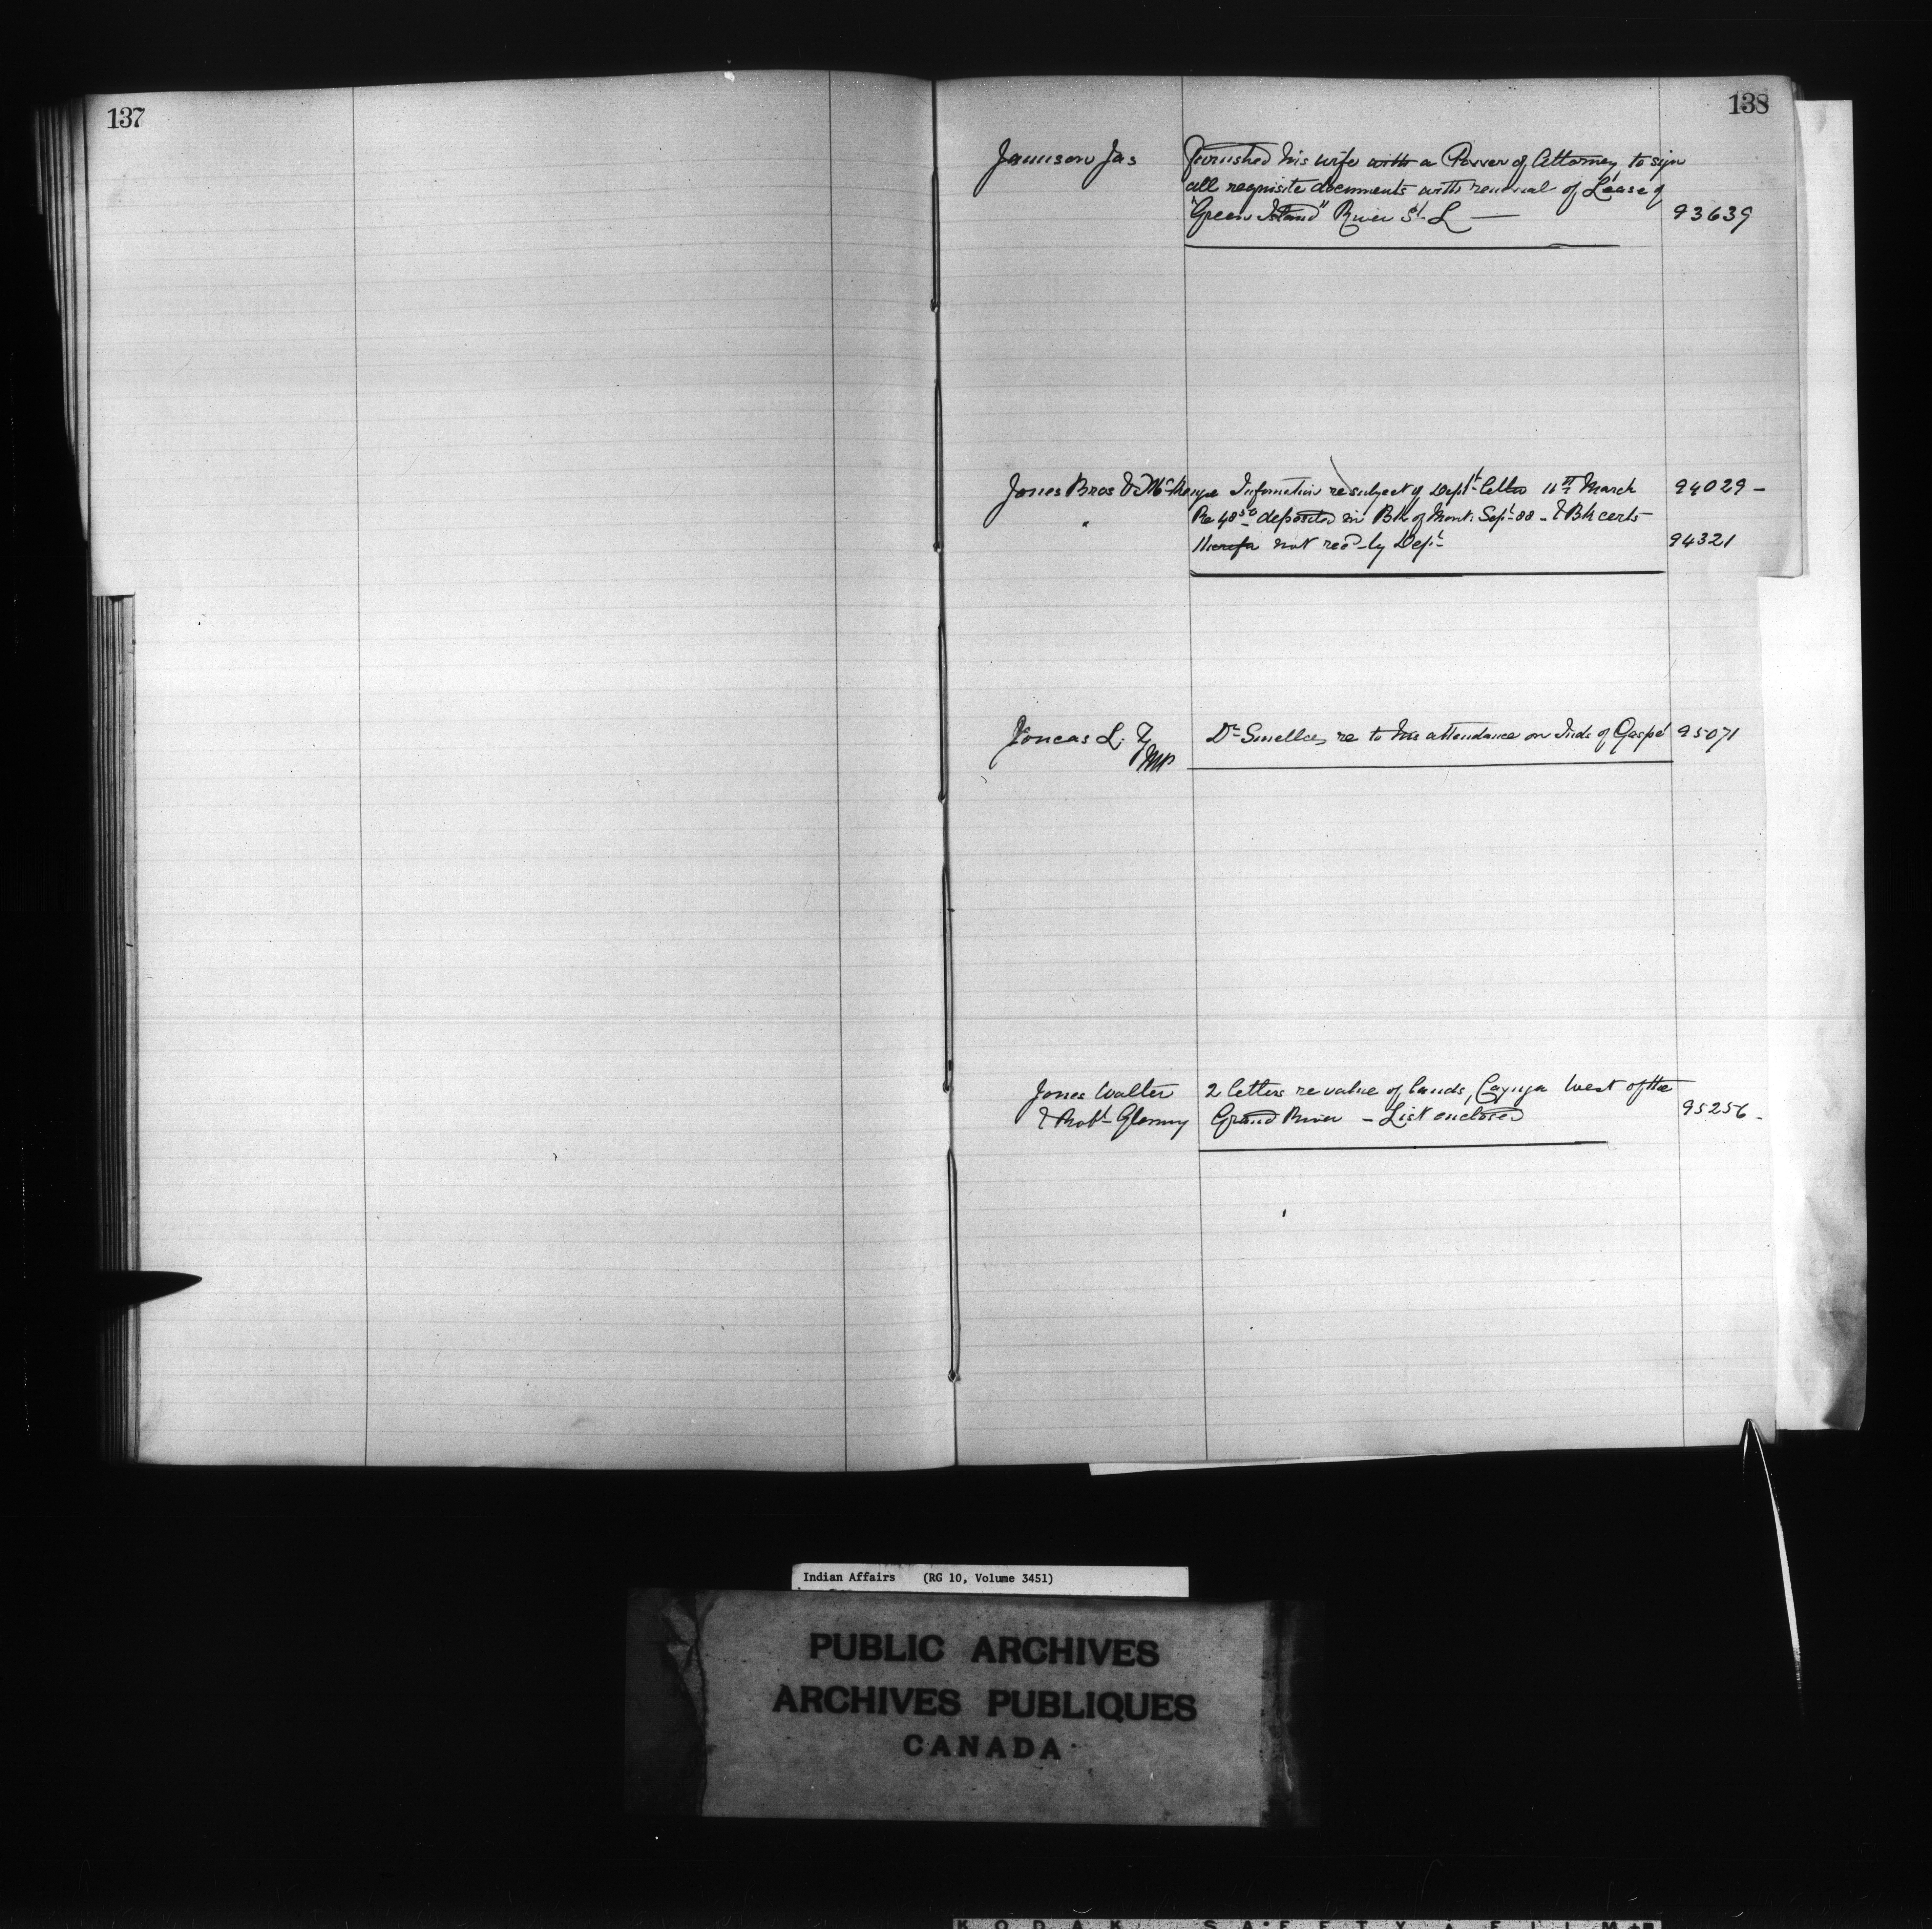 137
138
Jamison Jas furnished his wife with a Power of Attorney to sign
all requisite documents with renewal of Lease of
"Green Island" River St. L — 93639
Jones Bros & McKenzie Information re subject of Dept letter 11th March 94029 -
" Re 48 50 deposited in Bk of Mont: Sept 88 - & Bk certs
therefor not recd by Dept 94321
Joncas L. Z. Dr Smellie, re to his attendance on Inds of Gaspé 95071
MP
Jones Walter 2 letters re value of lands, Cayuga West of the
& Robt Glenny Grand River - List enclosed 95256 -
Indian Affairs (RG 10, Volume 3451)
PUBLIC ARCHIVES
ARCHIVES PUBLIQUES
CANADA
KODAK SAFETY FILM